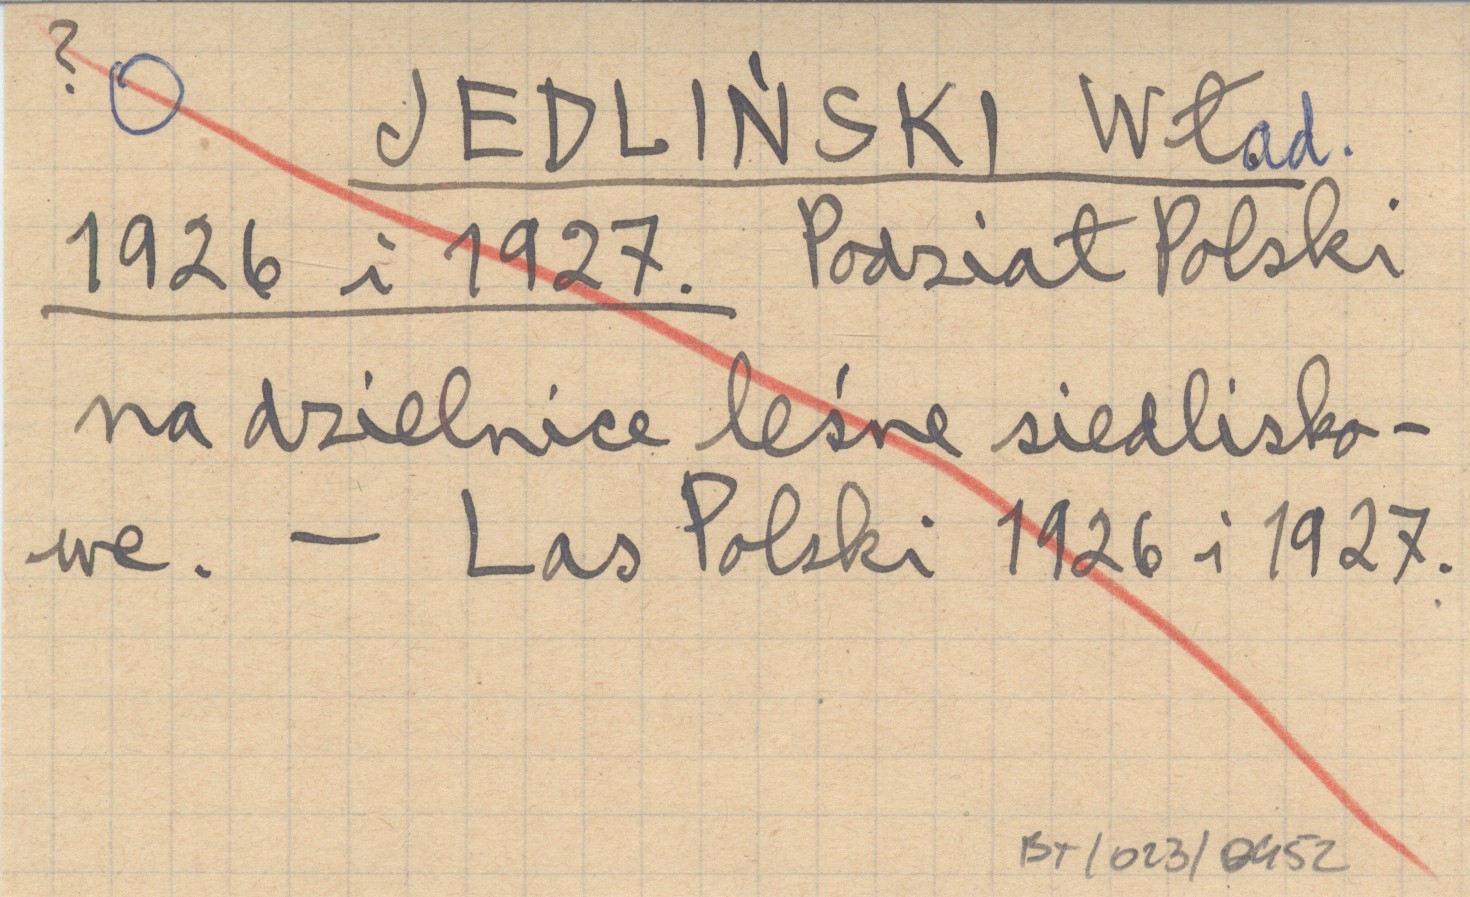 ?
JEDLIŃSKI Wład.
1926 i 1927. Podział Polski
na dzielnice leśne siedlisko-
we. — Las Polski 1926 i 1927.
BT/023/0452